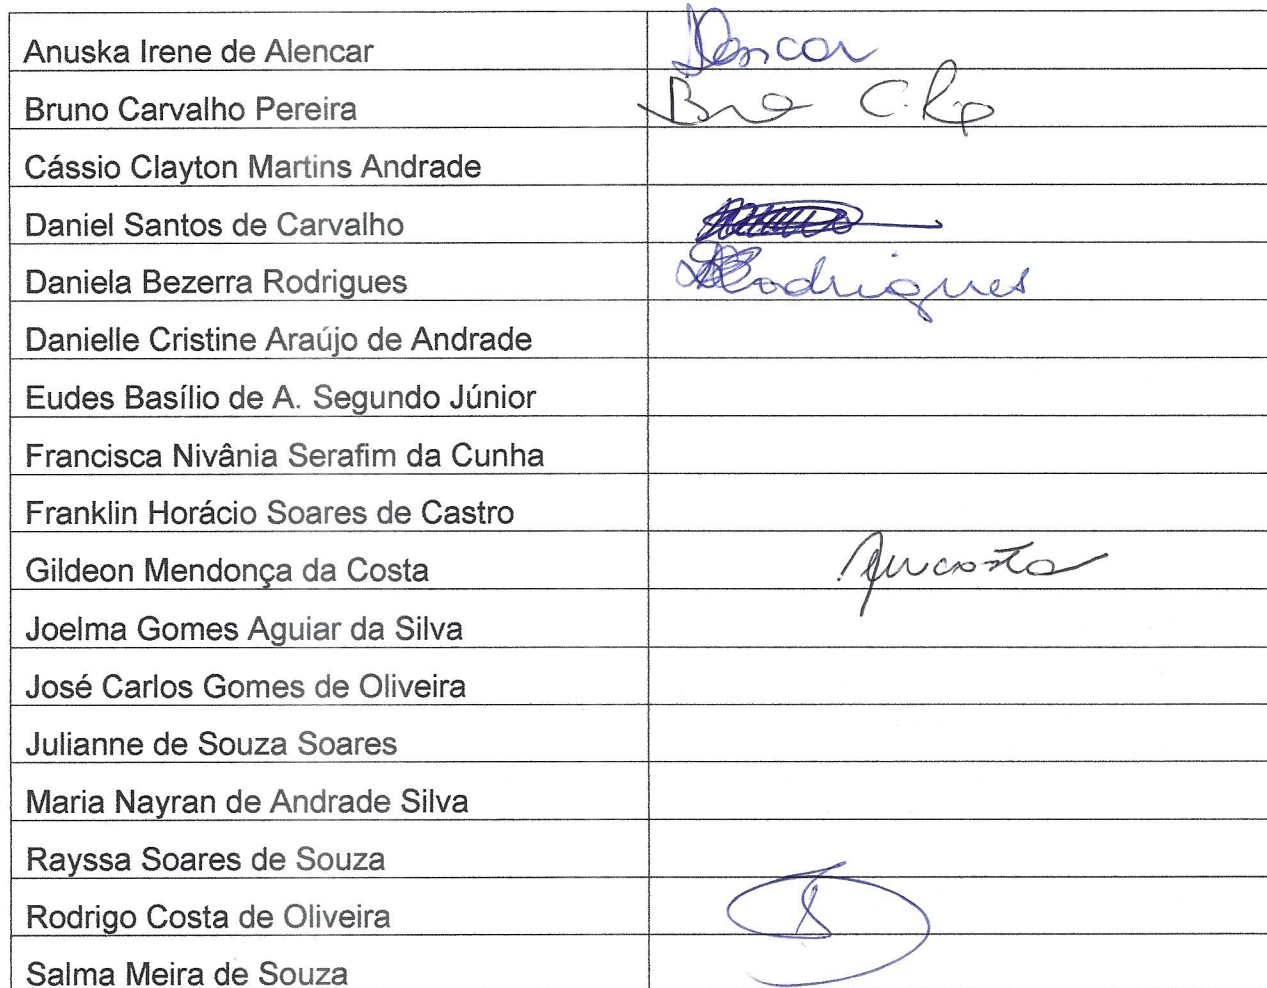 Anuska Irene de Alencar
Bruno Carvalho Pereira
Cássio Clayton Martins Andrade
Daniel Santos de Carvalho
Daniela Bezerra Rodrigues Rodrigues
Danielle Cristine Araújo de Andrade
Eudes Basílio de A. Segundo Júnior
Francisca Nivânia Serafim da Cunha
Franklin Horácio Soares de Castro
Gildeon Mendonça da Costa
Joelma Gomes Aguiar da Silva
José Carlos Gomes de Oliveira
Julianne de Souza Soares
Maria Nayran de Andrade Silva
Rayssa Soares de Souza
Rodrigo Costa de Oliveira
Salma Meira de Souza